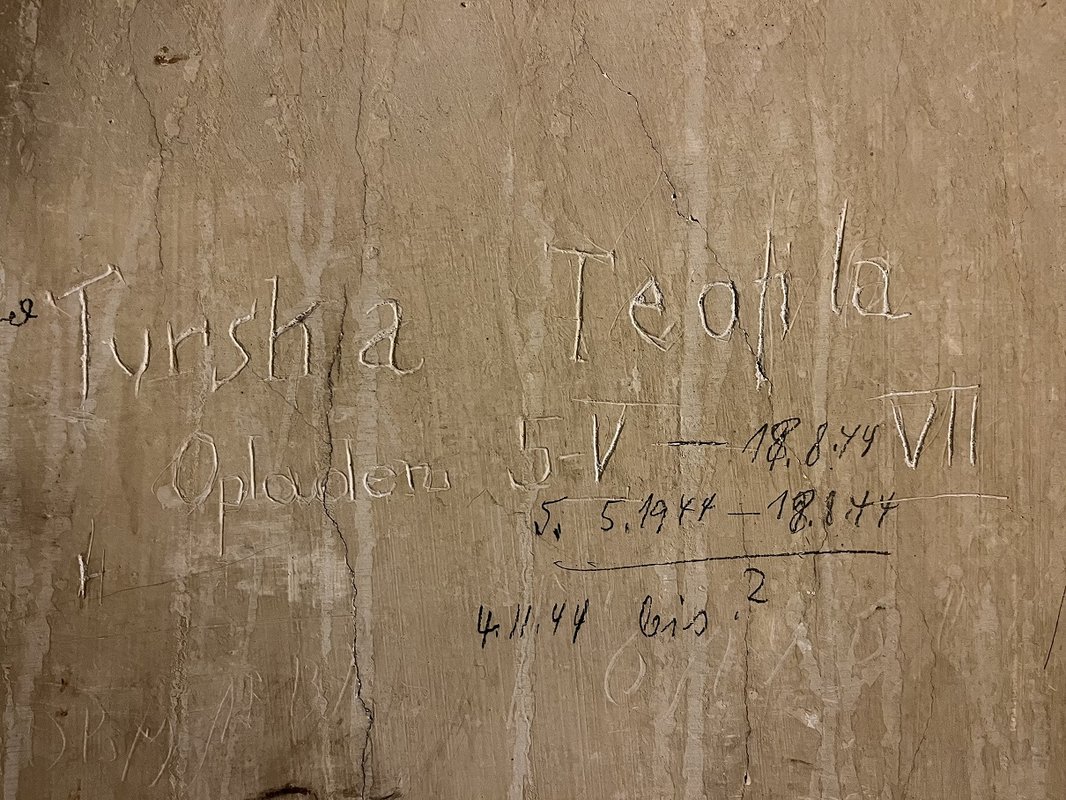 Turska Teofila
Opladen 5-V — 18.8.44 VII
5. 5.1944 — 18.8.44
4.11.44 bis ?